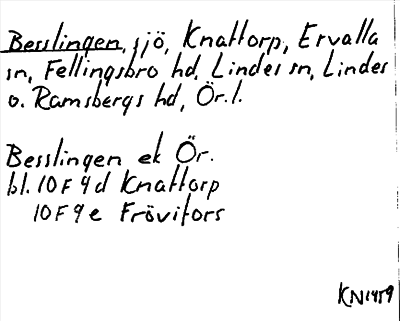 Besslingen, sjö, Knattorp, Ervalla
sn, Fellingsbro hd, Lindes sn, Lindes
o. Ramsbergs hd, Ör. l.
Besslingen ek Ör.
bl. 10 F 9 d Knattorp
10 F 9 e Frövifors
KN 1959